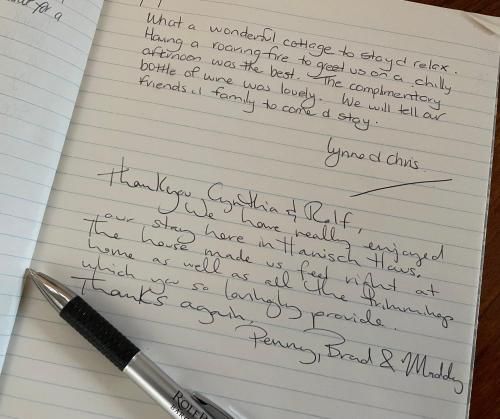 for a
What a wonderful cottage to stay & relax.
Having a roaring fire to greet us on a chilly
afternoon was the best. The complimentary
bottle of wine was lovely. We will tell our
friends & family to come & stay.
Lynne & Chris.
Thankyou Cynthia & Rolf,
We have really enjoyed
our stay here in Hanisch Haus.
The house made us feel right at
home as well as all the trimmings
which you so lovingly provide.
Thanks again,
Penny, Brad & Maddy
ROLF